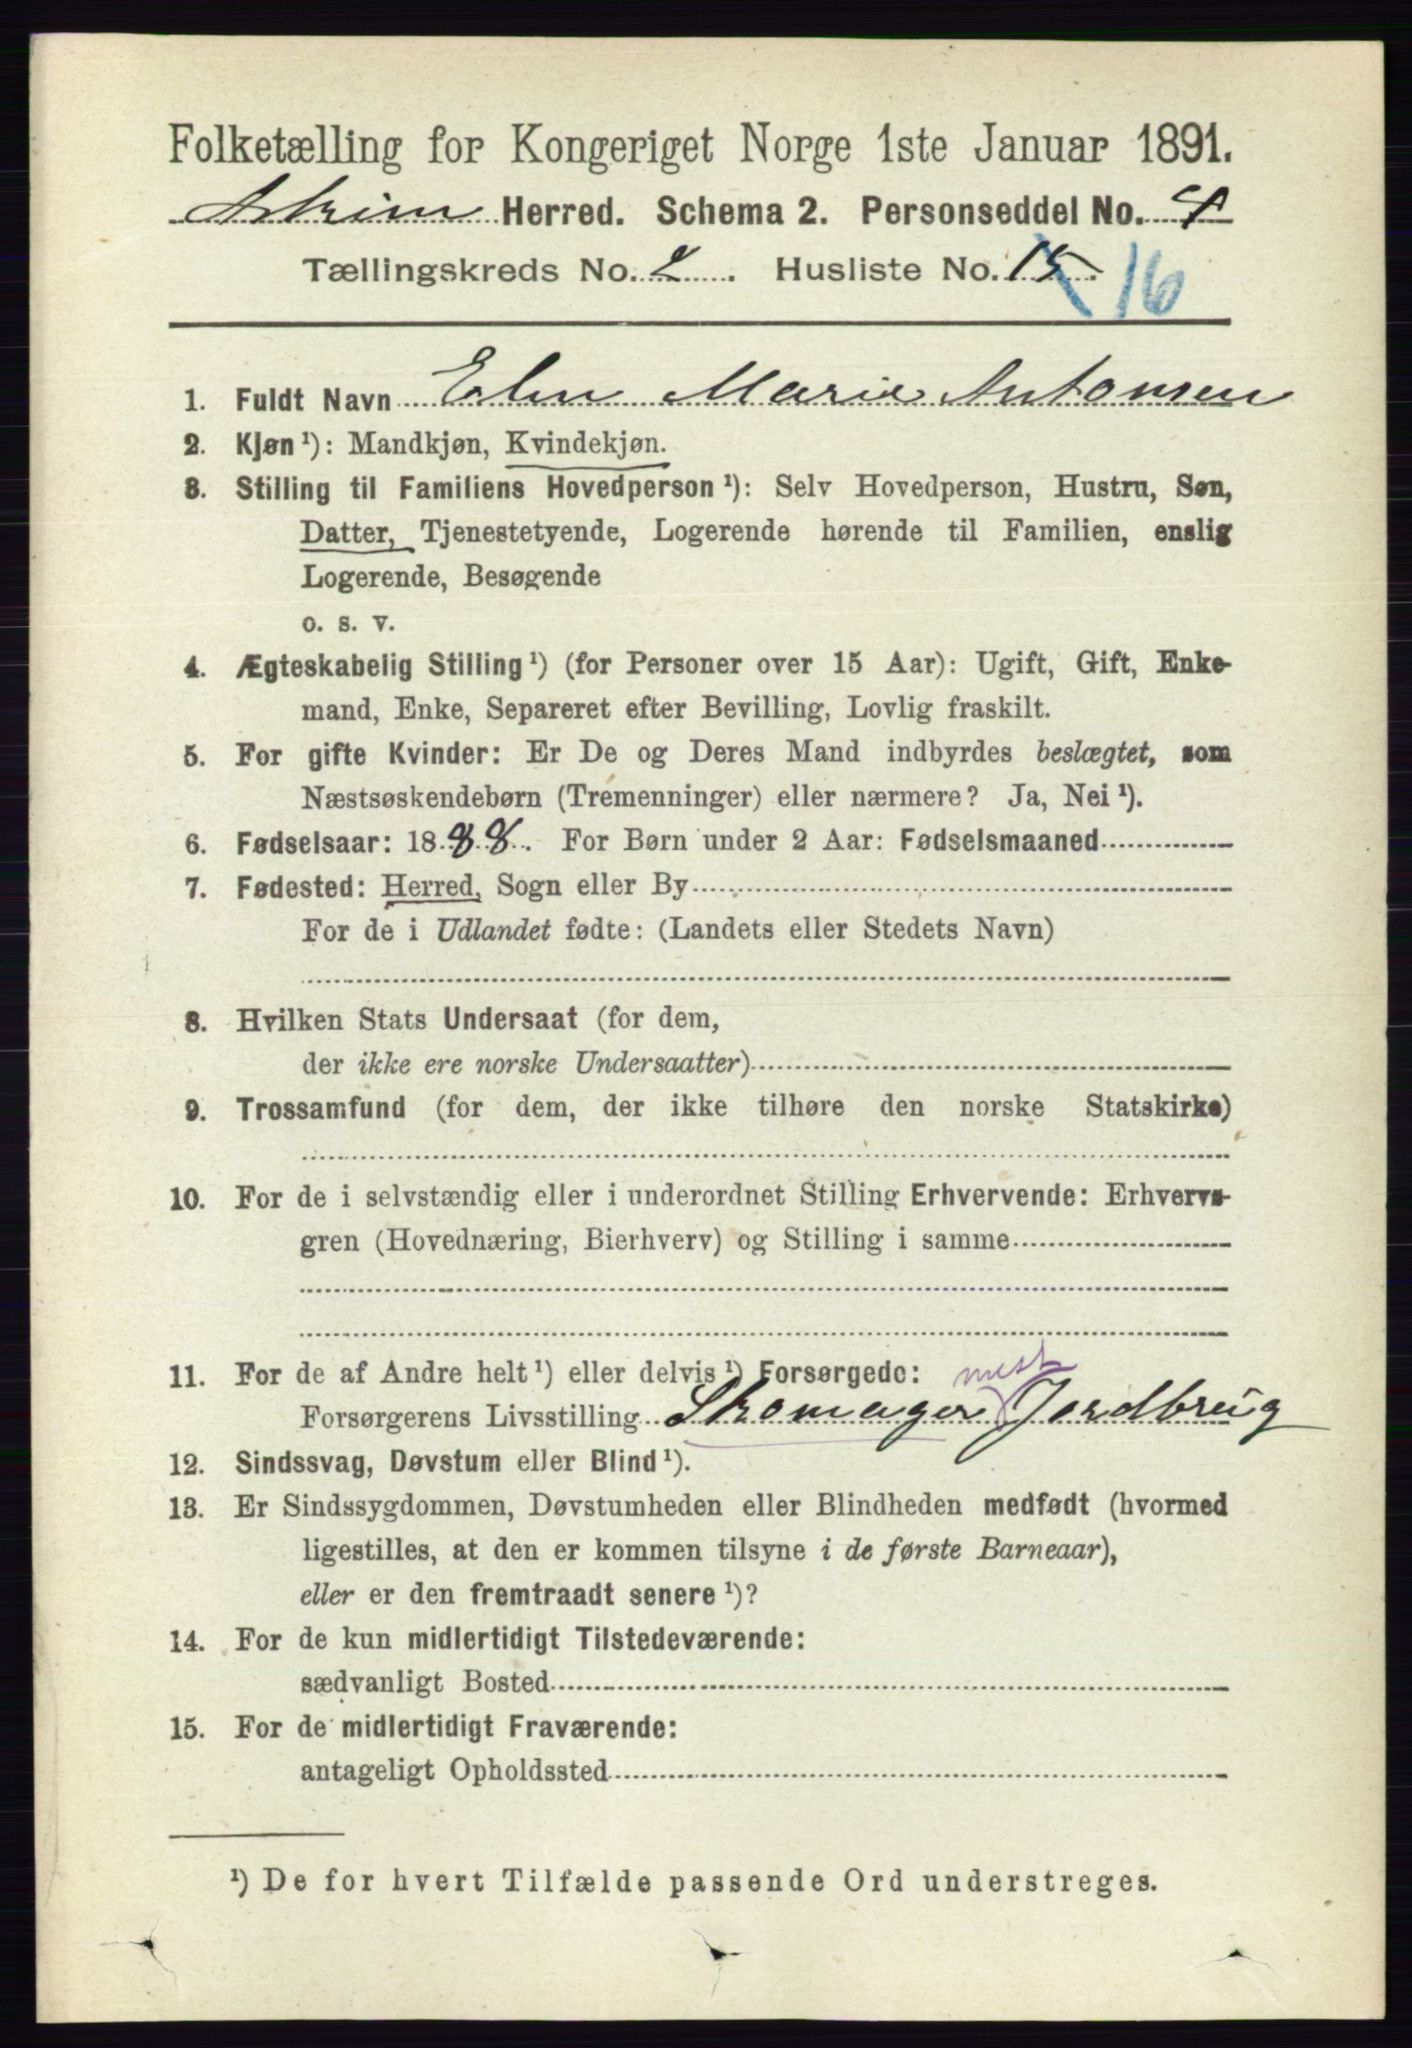 Folketælling for Kongeriget Norge 1ste Januar 1891.
Askim Herred. Schema 2. Personseddel No. 4
Tællingskreds No. 2. Husliste No. 15. 16
1. Fuldt Navn Marie Antonsen
2. Kjøn ¹): Mandkjøn, Kvindekjøn.
3. Stilling til Familiens Hovedperson ¹): Selv Hovedperson, Hustru, Søn,
Datter, Tjenestetyende, Logerende hørende til Familien, enslig
Logerende, Besøgende
o. s. v.
4. Ægteskabelig Stilling ¹) (for Personer over 15 Aar): Ugift, Gift, Enke-
mand, Enke, Separeret efter Bevilling, Lovlig fraskilt.
5. For gifte Kvinder: Er De og Deres Mand indbyrdes beslægtet, som
Næstsøskendebørn (Tremenninger) eller nærmere? Ja, Nei ¹).
6. Fødselsaar: 1888. For Børn under 2 Aar: Fødselsmaaned
7. Fødested: Herred, Sogn eller By
For de i Udlandet fødte: (Landets eller Stedets Navn)
8. Hvilken Stats Undersaat (for dem,
der ikke ere norske Undersaatter)
9. Trossamfund (for dem, der ikke tilhøre den norske Statskirke)
10. For de i selvstændig eller i underordnet Stilling Erhvervende: Erhvervs-
gren (Hovednæring, Bierhverv) og Stilling i samme
11. For de af Andre helt ¹) eller delvis ¹) Forsørgede:
mest
Forsørgerens Livsstilling Skomager Jordbrug
12. Sindssvag, Døvstum eller Blind ¹).
13. Er Sindssygdommen, Døvstumheden eller Blindheden medfødt (hvormed
ligestilles, at den er kommen tilsyne i de første Barneaar),
eller er den fremtraadt senere ¹)?
14. For de kun midlertidigt Tilstedeværende:
sædvanligt Bosted
15. For de midlertidigt Fraværende:
antageligt Opholdssted
¹) De for hvert Tilfælde passende Ord understreges.